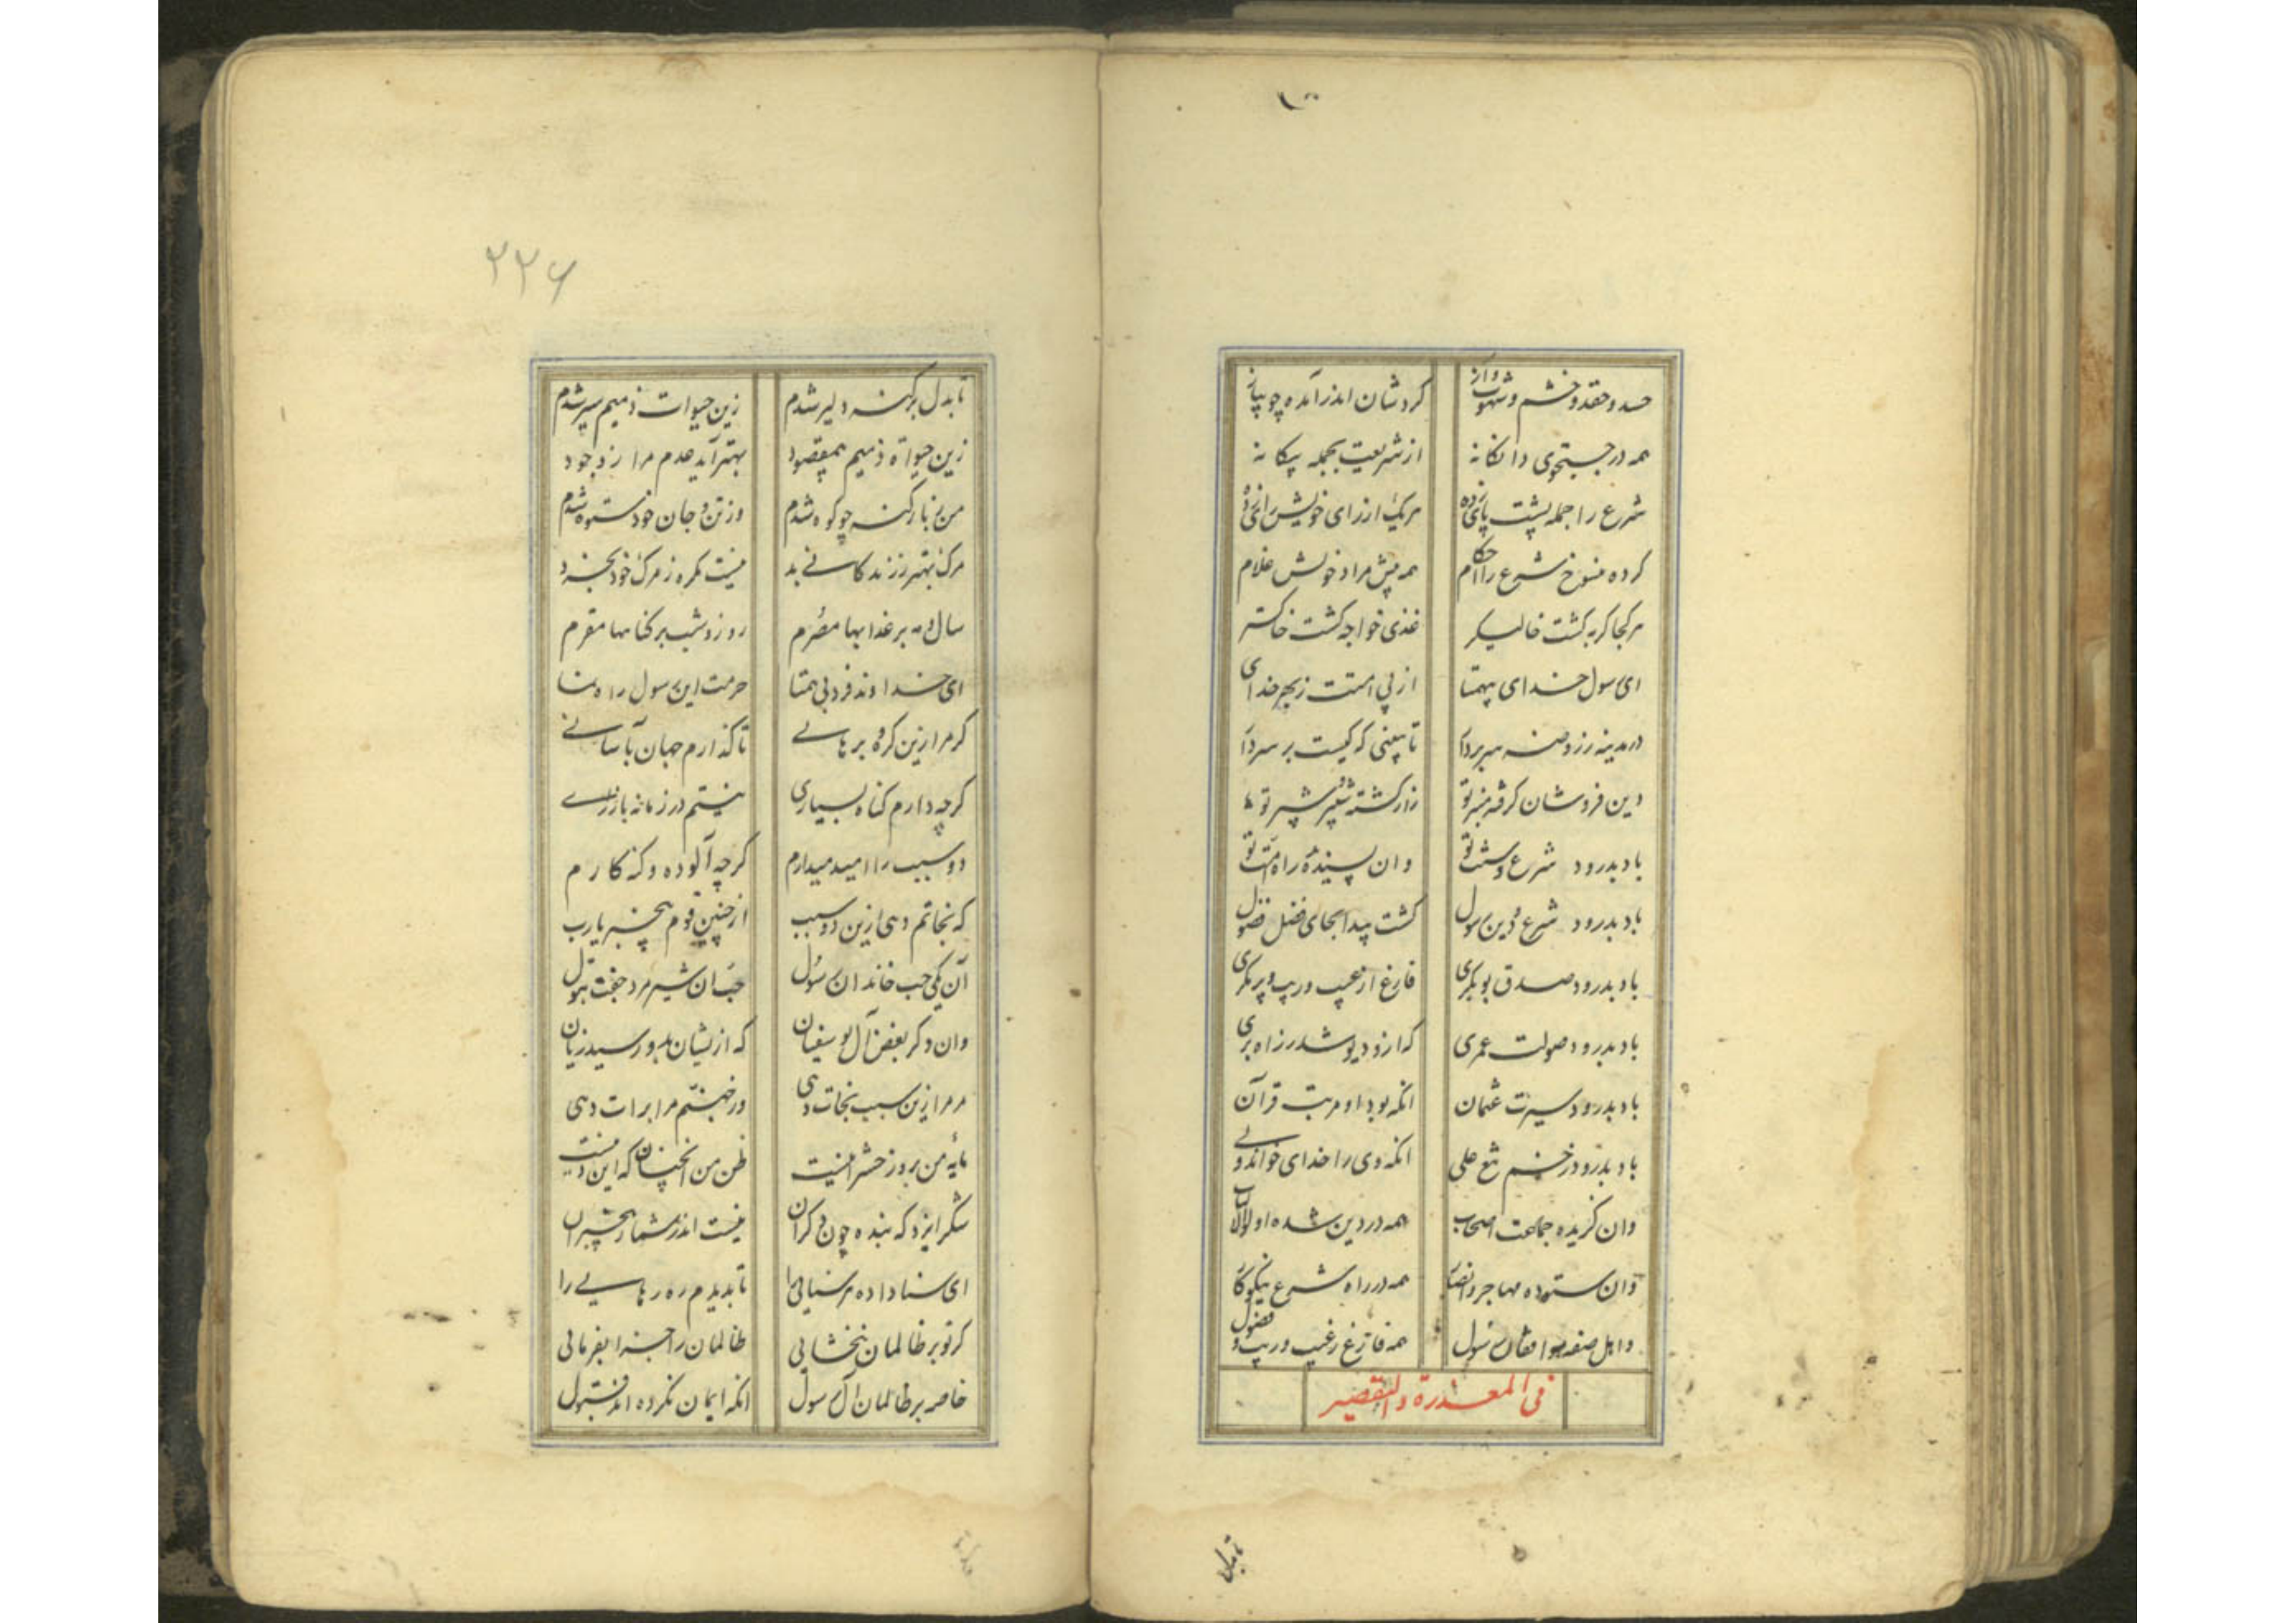 حسد و حقد و خشم و شهوت و آز	کردشان اندر آمده چو پیاز
همه در جستجوی دانکانه	از شریعت بجمله بیکانه
شرع را جمله پشت پای زده	هر یک از رای خویش
کرده منسوخ شرع را احکام	همه پیش مراد خویش غلام
هر کجا کربه کشت خالیکر	غذی خواجه کشت خاکستر
ای رسول خدای بیهمتا	از پی امتت ز بهر خدای
در مدینه ز روضه سر بردار	تا ببینی که کیست بر سر دار
دین فروشان کرفته منبر تو	زار کشته شبیر و شبر تو
باد بدرود شرع و سنت تو	وان پسندیده راه امت تو
باد بدرود شرع و دین رسول	کشت پیدا بجای فضل فضول
باد بدرود صدق بوبکری	فارغ از عیب و ریب و پر مکری
باد بدرود صولت عمری	که ازو دیو شد ز راه بری
باد بدرود سیرت عثمان	انکه بود او مرتب قرآن
باد بدرود زخم تیغ علی	انکه وی را خدای خواند ولی
وان کزیده جماعت اصحاب	همه در دین شده اولوالالباب
وان ستوده مهاجر و انصار	همه در راه شرع نیکوکار
واهل صفه موافقان رسول	همه فارغ ز عیب و ریب و فضول
فی المعذرة والتقصیر
تا بدل
۲۲۶
تا بدل بر کنه دلیر شدم	زین حیوات ذمیم سیر شدم
زین حیواة ذمیم بیمقصود	بهتر آید عدم مرا ز وجود
من ز بار کنه چو کوه شدم	وز تن و جان خود ستوه شدم
مرک بهتر ز زندکانی بد	نیست مکره ز مرک خود بخرد
سال و مه بر غدابها مصرم	روز و شب بر کناهها مقرم
ای خداوند فرد بی همتا	حرمت این رسول راه نما
کر مرا زین کروه برهانی	تا کذارم جهان بآسانی
کرچه دارم کناه بسیاری	نیستم در زمانه بازاری
دو سبب را امید میدارم	کرچه آلوده و کنه کارم
که نجاتم دهی ازین دو سبب	از چنین قوم بیخبر یارب
آن یکی حب خاندان رسول	حب آن شیر مرد جفت بتول
وان دکر بغض آل بوسفیان	که از یشان بدو رسید زیان
مر مرا زین سبب نجات دهی	وز جهنم مرا برات دهی
مایه من بروز حشر اینست	ظن من آنچنان که این دینست
شکر ایزد که بنده چون دکران	نیست اندر شمار بیخبران
ای سنا داده مر سنایی را	تا بدیدم ره رهایی را
کر تو بر ظالمان نبخشایی	ظالمان را جزا بفرمایی
خاصه بر ظالمان آل رسول	انکه ایمان نکرده اند قبول